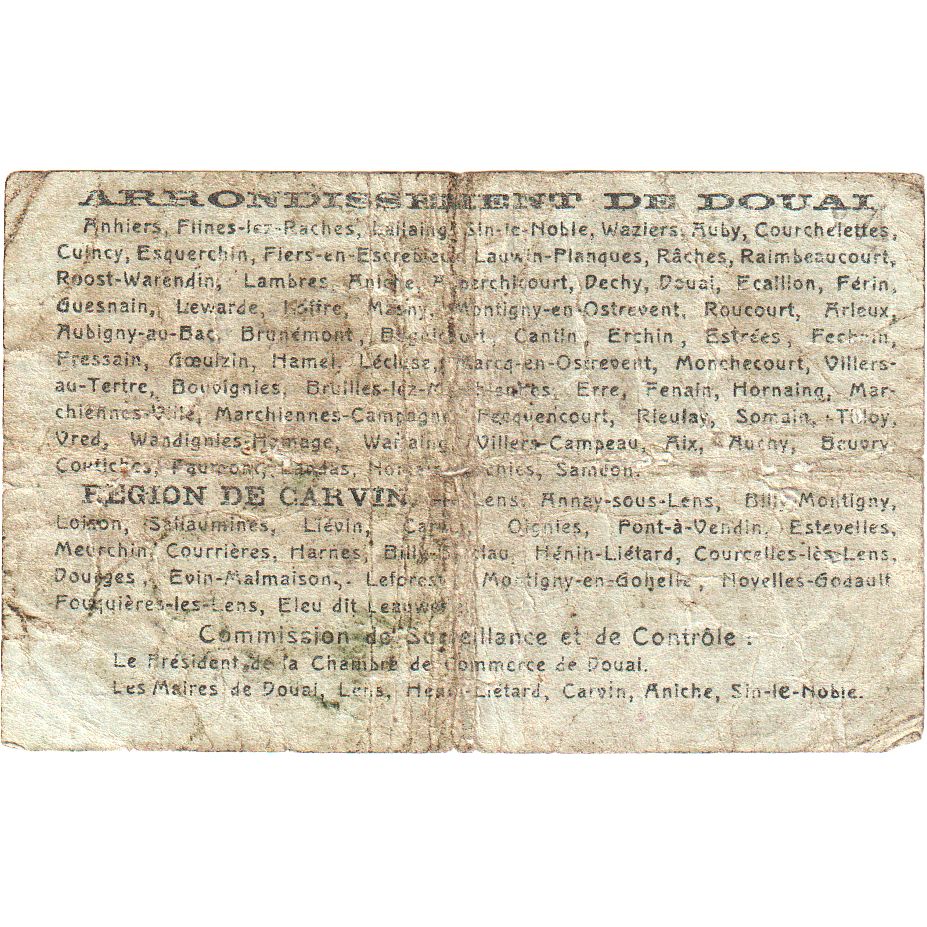 ARRONDISSEMENT DE DOUAI
Anhiers, Flines-lez-Raches, Lallaing, Sin-le-Noble, Waziers, Auby, Courchelettes,
Cuincy, Esquerchin, Flers-en-Escrebieux, Lauwin-Planques, Râches, Raimbeaucourt,
Roost-Warendin, Lambres, Aniche, Auberchicourt, Dechy, Douai, Ecaillon, Férin,
Guesnain, Lewarde, Loffre, Masny, Montigny-en-Ostrevent, Roucourt, Arleux,
Aubigny-au-Bac, Brunémont, Bugnicourt, Cantin, Erchin, Estrées, Fechain,
Fressain, Gœulzin, Hamel, Lécluse, Marcq-en-Ostrevent, Monchecourt, Villers-
au-Tertre, Bouvignies, Bruilles-lez-Marchiennes, Erre, Fenain, Hornaing, Mar-
chiennes-Ville, Marchiennes-Campagne, Pecquencourt, Rieulay, Somain, Tilloy,
Vred, Wandignies-Hamage, Warlaing, Villers-Campeau, Aix, Auchy, Beuvry,
Coutiches, Faumont, Landas, Sameon.
REGION DE CARVIN. Lens, Annay-sous-Lens, Billy-Montigny,
Loison, Sallaumines, Liévin, Carvin, Oignies, Pont-à-Vendin, Estevelles,
Meurchin, Courrières, Harnes, Billy-Berclau, Hénin-Liétard, Courcelles-lès-Lens,
Dourges, Evin-Malmaison, Leforest, Montigny-en-Gohelle, Noyelles-Godault
Fouquières-les-Lens, Eleu dit Leauwette.
Commission de Surveillance et de Contrôle :
Le Président de la Chambre de Commerce de Douai.
Les Maires de Douai, Lens, Hénin-Liétard, Carvin, Aniche, Sin-le-Noble.